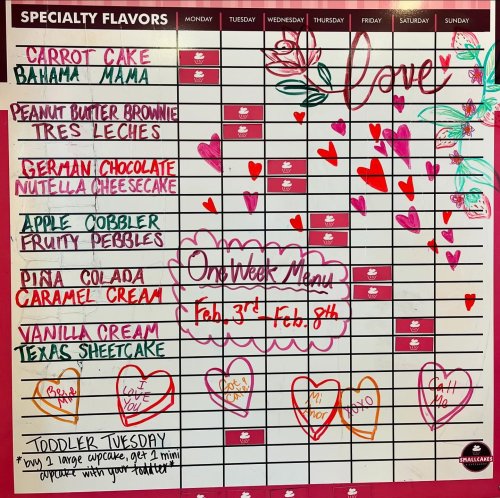 SPECIALTY FLAVORS MONDAY TUESDAY WEDNESDAY THURSDAY FRIDAY SATURDAY SUNDAY
love
CARROT CAKE
BAHAMA MAMA
PEANUT BUTTER BROWNIE
TRES LECHES
GERMAN CHOCOLATE
NUTELLA CHEESECAKE
APPLE COBBLER
FRUITY PEBBLES
One Week Menu
PIÑA COLADA
CARAMEL CREAM
Feb. 3rd - Feb. 8th
VANILLA CREAM
TEXAS SHEETCAKE
Be Mine
I Love You
Got Cake?
Mi Amor
XOXO
Call Me
TODDLER TUESDAY
*buy 1 large cupcake, get 1 mini
cupcake with your toddler*
SMALLCAKES